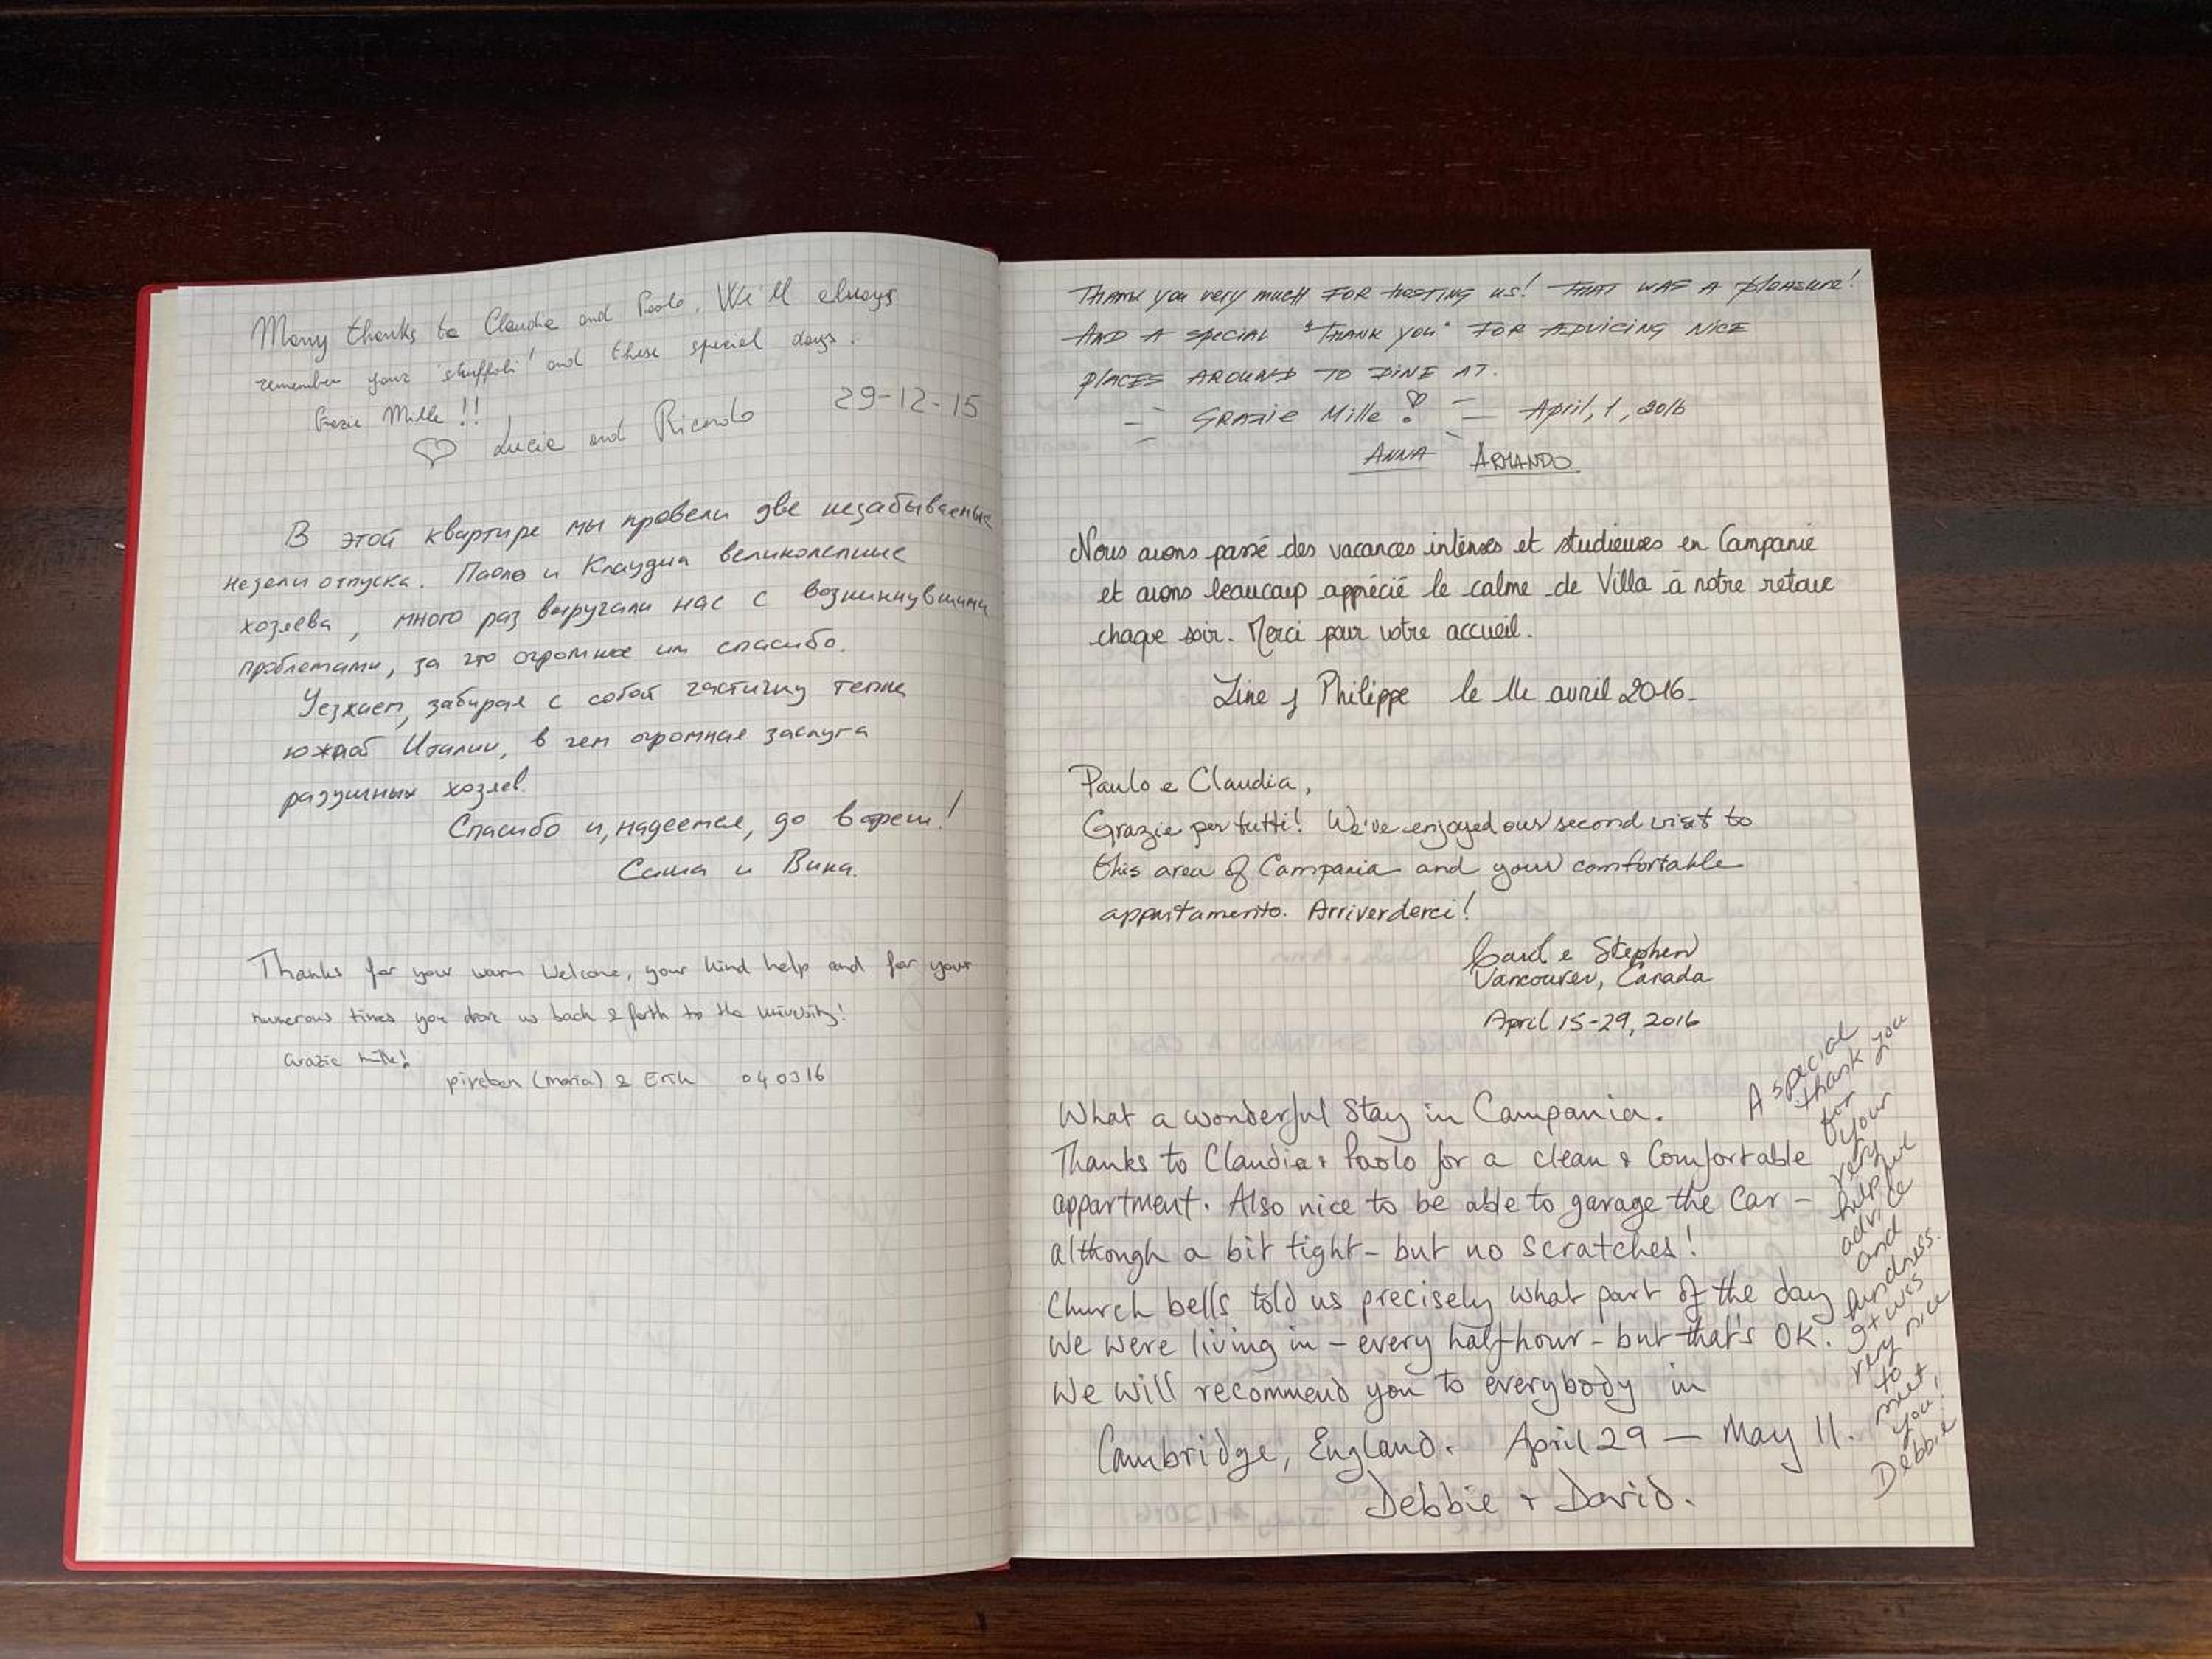 Many thanks to Claudia and Paolo. We'll always
remember your 'struffoli' and these special days.
Grazie Mille!!
29-12-15
♡ Lucie and Ricardo
В этой квартире мы провели две незабываемые
недели отпуска. Паоло и Клаудиа великолепные
хозяева, много раз выручали нас с возникнувшими
проблемами, за что огромное им спасибо.
Уезжаем, забирая с собой частичку тепла
южной Италии, в чем огромная заслуга
радушных хозяев.
Спасибо и, надеемся, до встречи!
Саша и Вика.
Thanks for your warm welcome, your kind help and for your
numerous times you drove us back & forth to the university!
Grazie mille!
(maria) & Erik 040316
Thank you very much FOR HOSTING us! THAT WAS A pleasure!
AND A special "THANK YOU" FOR ADVICING NICE
places AROUND TO DINE AT.
- GRAZIE Mille! ♡ - April, 1, 2016
ANNA ARMANDO
Nous avons passé des vacances intenses et studieuses en Campanie
et avons beaucoup apprécié le calme de Villa à notre retour
chaque soir. Merci pour votre accueil.
Line & Philippe le 14 avril 2016.
Paulo e Claudia,
Grazie per tutti! We've enjoyed our second visit to
this area of Campania and your comfortable
appartamento. Arriverderci!
Carol e Stephen
Vancouver, Canada
April 15-29, 2016
What a wonderful stay in Campania.
Thanks to Claudia + Paolo for a clean & Comfortable
appartment. Also nice to be able to garage the car -
although a bit tight - but no scratches!
Church bells told us precisely what part of the day
we were living in - every half-hour - but that's OK.
We will recommend you to everybody in
Cambridge, England. April 29 — May 11.
Debbie + David.
A special
thank you
for
your
very
helpful
advice
and
kindness.
It was
very nice
to
meet
you!
Debbie